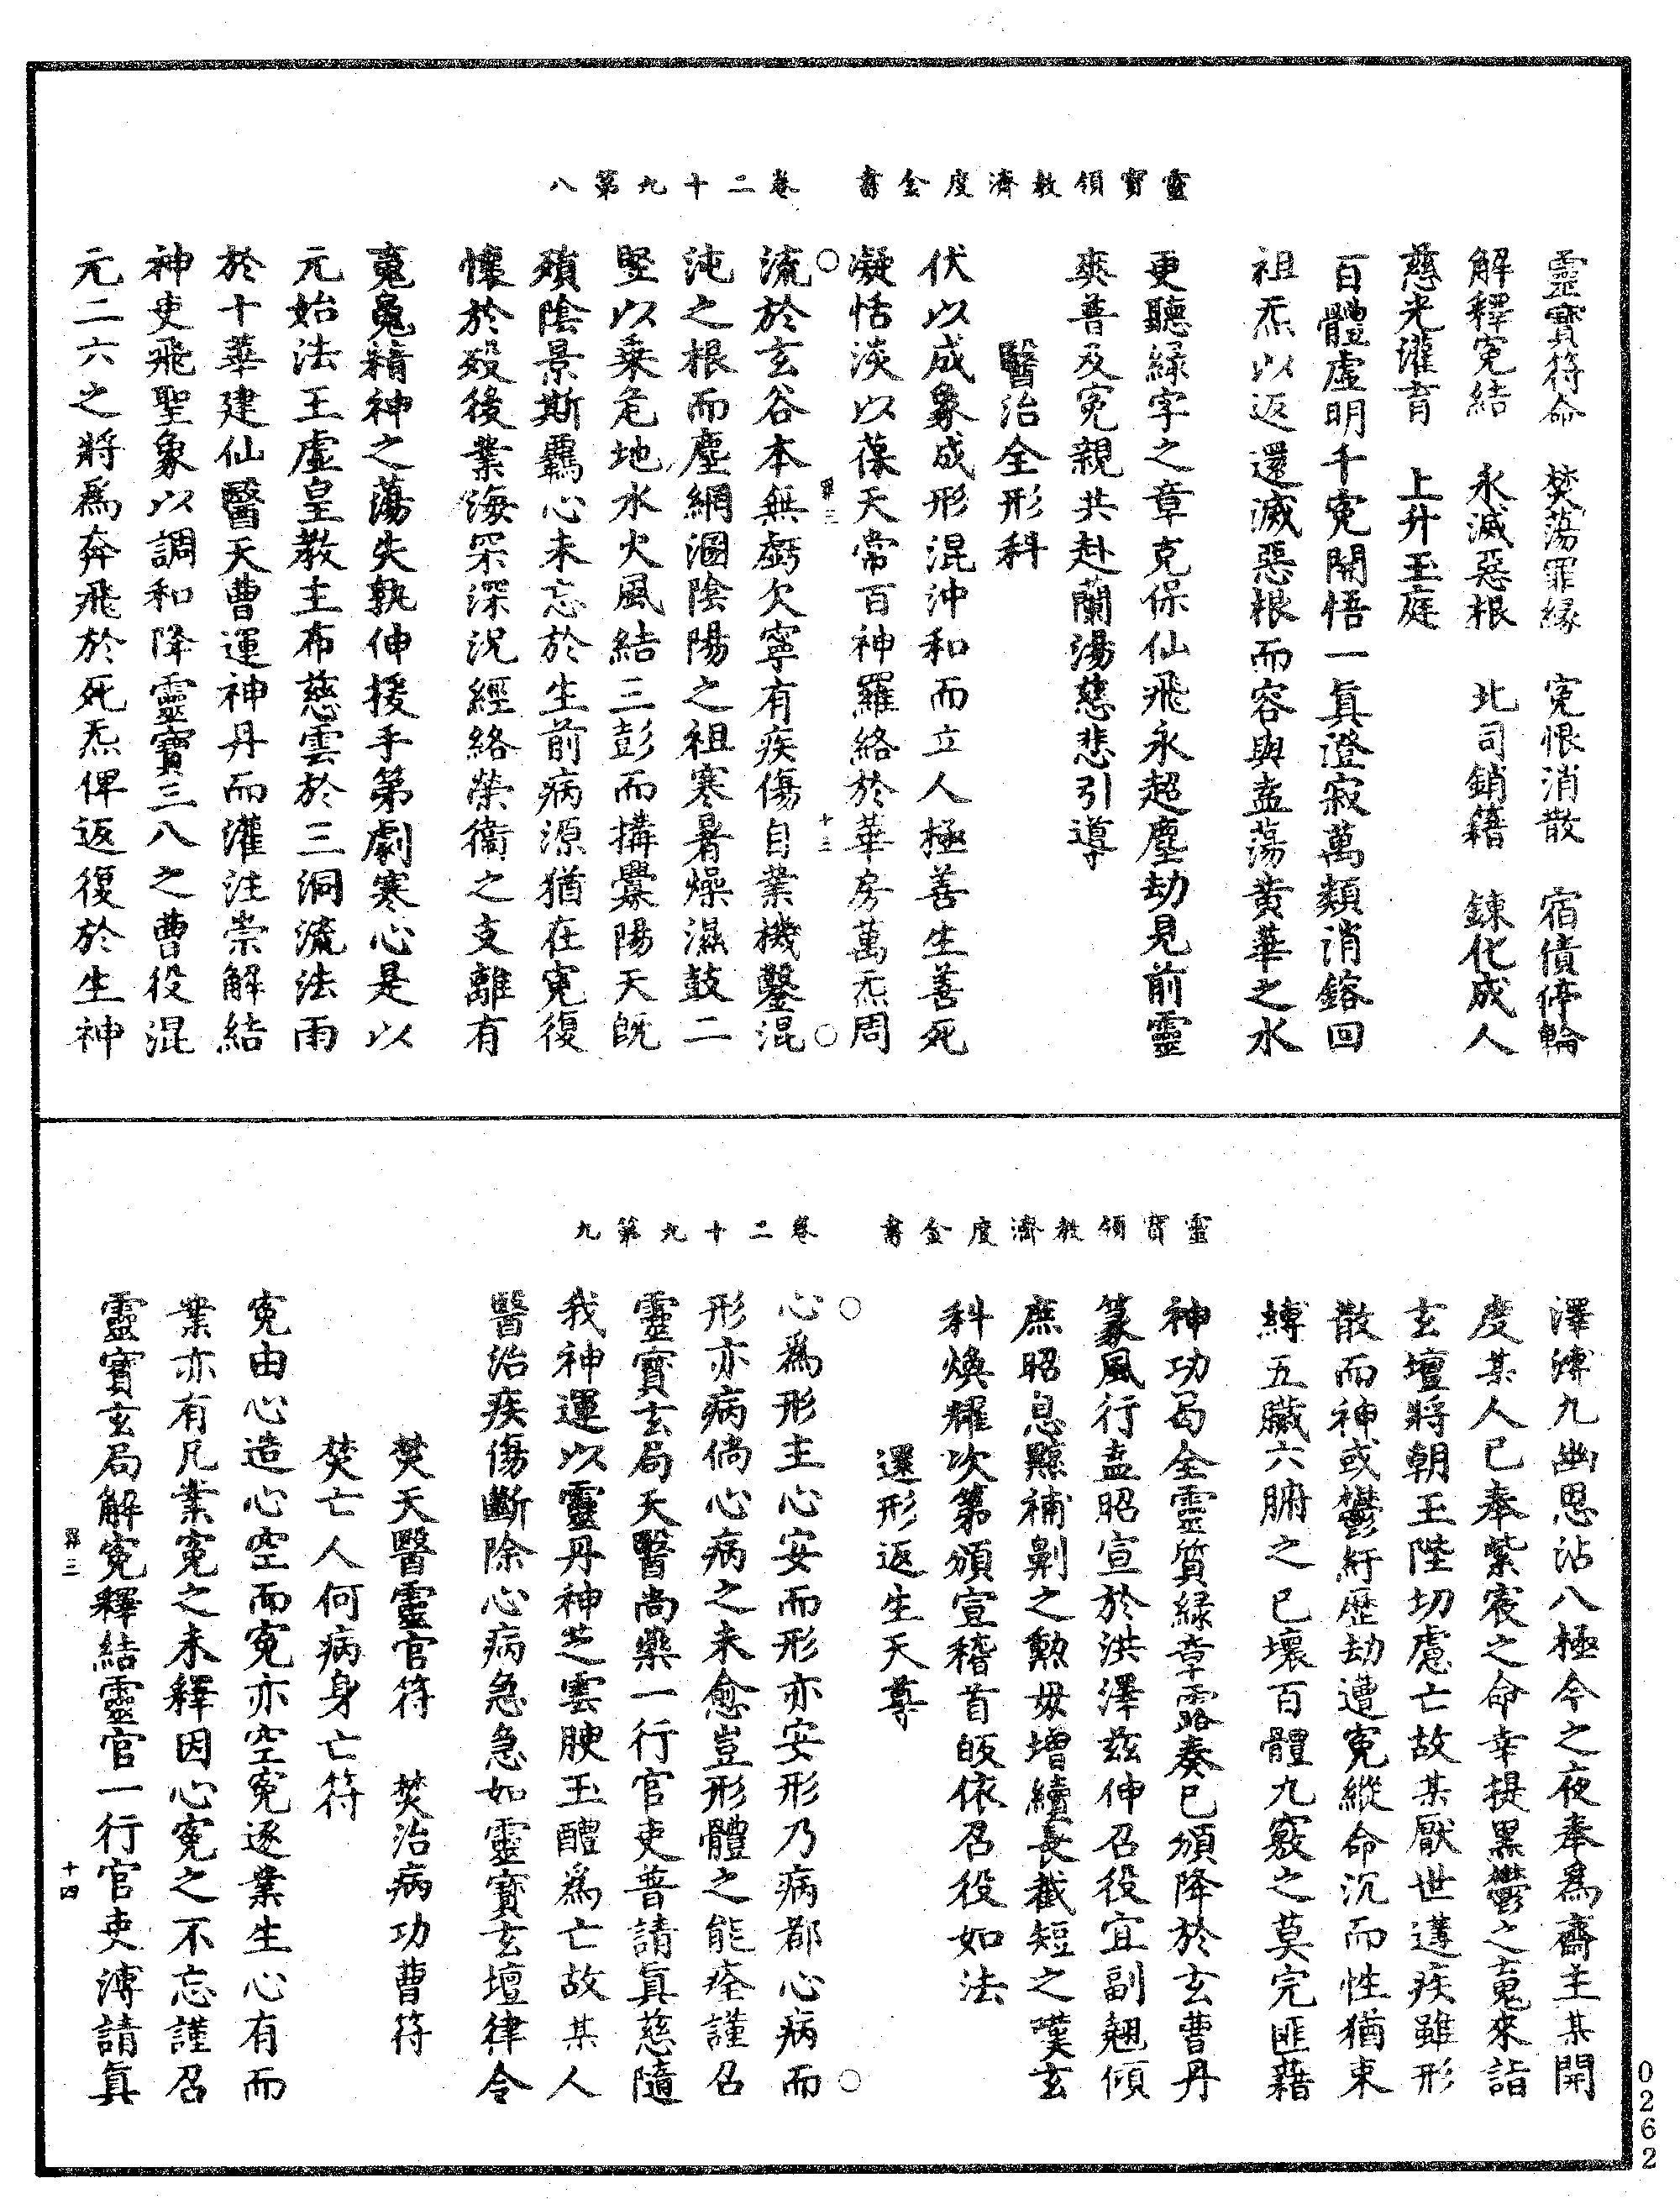 靈寶領教濟度金書　卷二十九第八
靈寶符命　焚蕩罪緣　冤恨消散　宿債停輪
解釋冤結　永滅惡根　北司銷籍　鍊化成人
慈光灌育　上升玉庭
百體虛明千冤開悟一真澄寂萬類消鎔回
祖炁以返還滅惡根而容與盍蕩黃華之水
更聽綠字之章克保仙飛永超塵劫見前靈
爽普及冤親共赴蘭湯慈悲引導
醫治全形科
伏以成象成形混沖和而立人極善生善死
凝恬淡以葆天常百神羅絡於華房萬炁周
第三　十三
流於玄谷本無虧欠寧有疾傷自業機鑿混
沌之根而塵網溷陰陽之祖寒暑燥濕鼓二
堅以乘危地水火風結三彭而搆釁陽天既
殞陰景斯羈心未忘於生前病源猶在冤復
懷於歿後業海罙深況經絡榮衞之支離有
䰟魄精神之蕩失孰伸援手第劇寒心是以
元始法王虛皇教主布慈雲於三洞流法雨
於十華建仙醫天曹運神丹而灌注崇解結
神吏飛聖象以調和降靈寶三八之曹役混
元二六之將爲奔飛於死炁俾返復於生神
靈寶領教濟度金書　卷二十九第九
澤溥九幽恩沾八極今之夜奉爲齋主某開
度某人已奉紫宸之命幸提黑鬱之䰟來詣
玄壇將朝王陛切慮亡故某厭世遘疾雖形
散而神或鬱紆歷劫遭冤縱命沉而性猶束
縛五臟六腑之已壞百體九竅之莫完匪藉
神功曷全靈質綠章露奏已頒降於玄曹丹
篆風行盍昭宣於洪澤兹伸召役宜副翹傾
庶昭息黥補劓之勲毋增續長截短之嘆玄
科煥耀次第頒宣稽首皈依召役如法
還形返生天尊
心爲形主心安而形亦安形乃病郡心病而
形亦病倘心病之未愈豈形體之能痊謹召
靈寶玄局天醫尚藥一行官吏普請真慈隨
我神運以靈丹神芝雲腴玉醴爲亡故某人
醫治疾傷斷除心病急急如靈寶玄壇律令
焚天醫靈官符　焚治病功曹符
焚亡人何病身亡符
冤由心造心空而冤亦空冤逐業生心有而
業亦有凡業冤之未釋因心冤之不忘謹召
靈寶玄局解冤釋結靈官一行官吏溥請真
第三　十四
0262